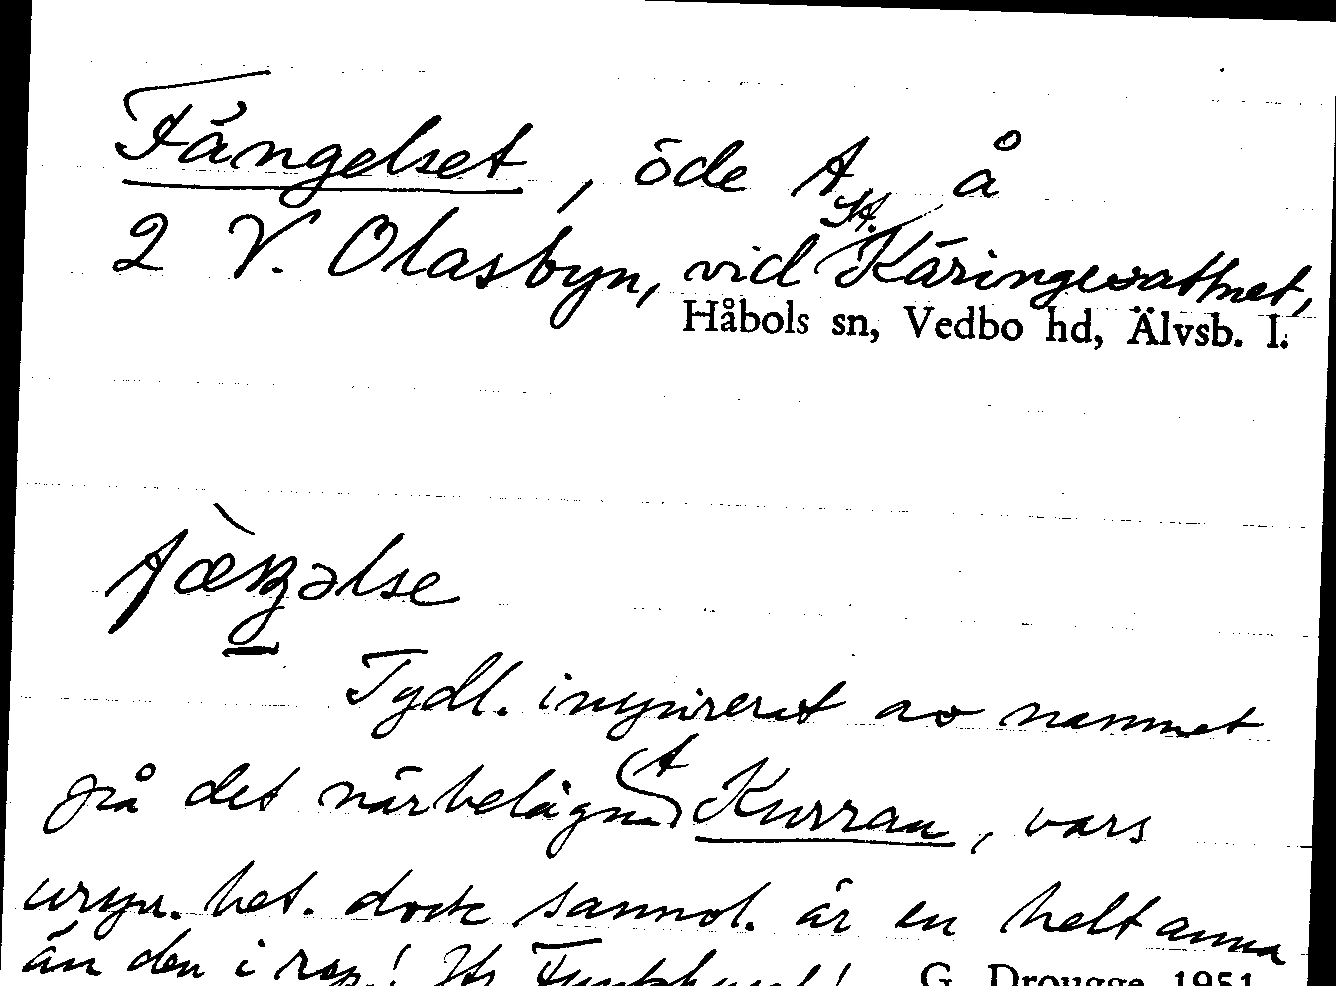 Fängelset, öde t å
St.
2 V. Olasbyn, vid Käringesattnet,
Håbols sn, Vedbo hd, Älvsb. l.
fæ̀ŋəlse
Tydl. inspirerat av namnet
på det närbelägna (t) Kurran, vars
urspr. bet. dock sannol. är en helt anna
än den i rsp.! G. Drougge 1951